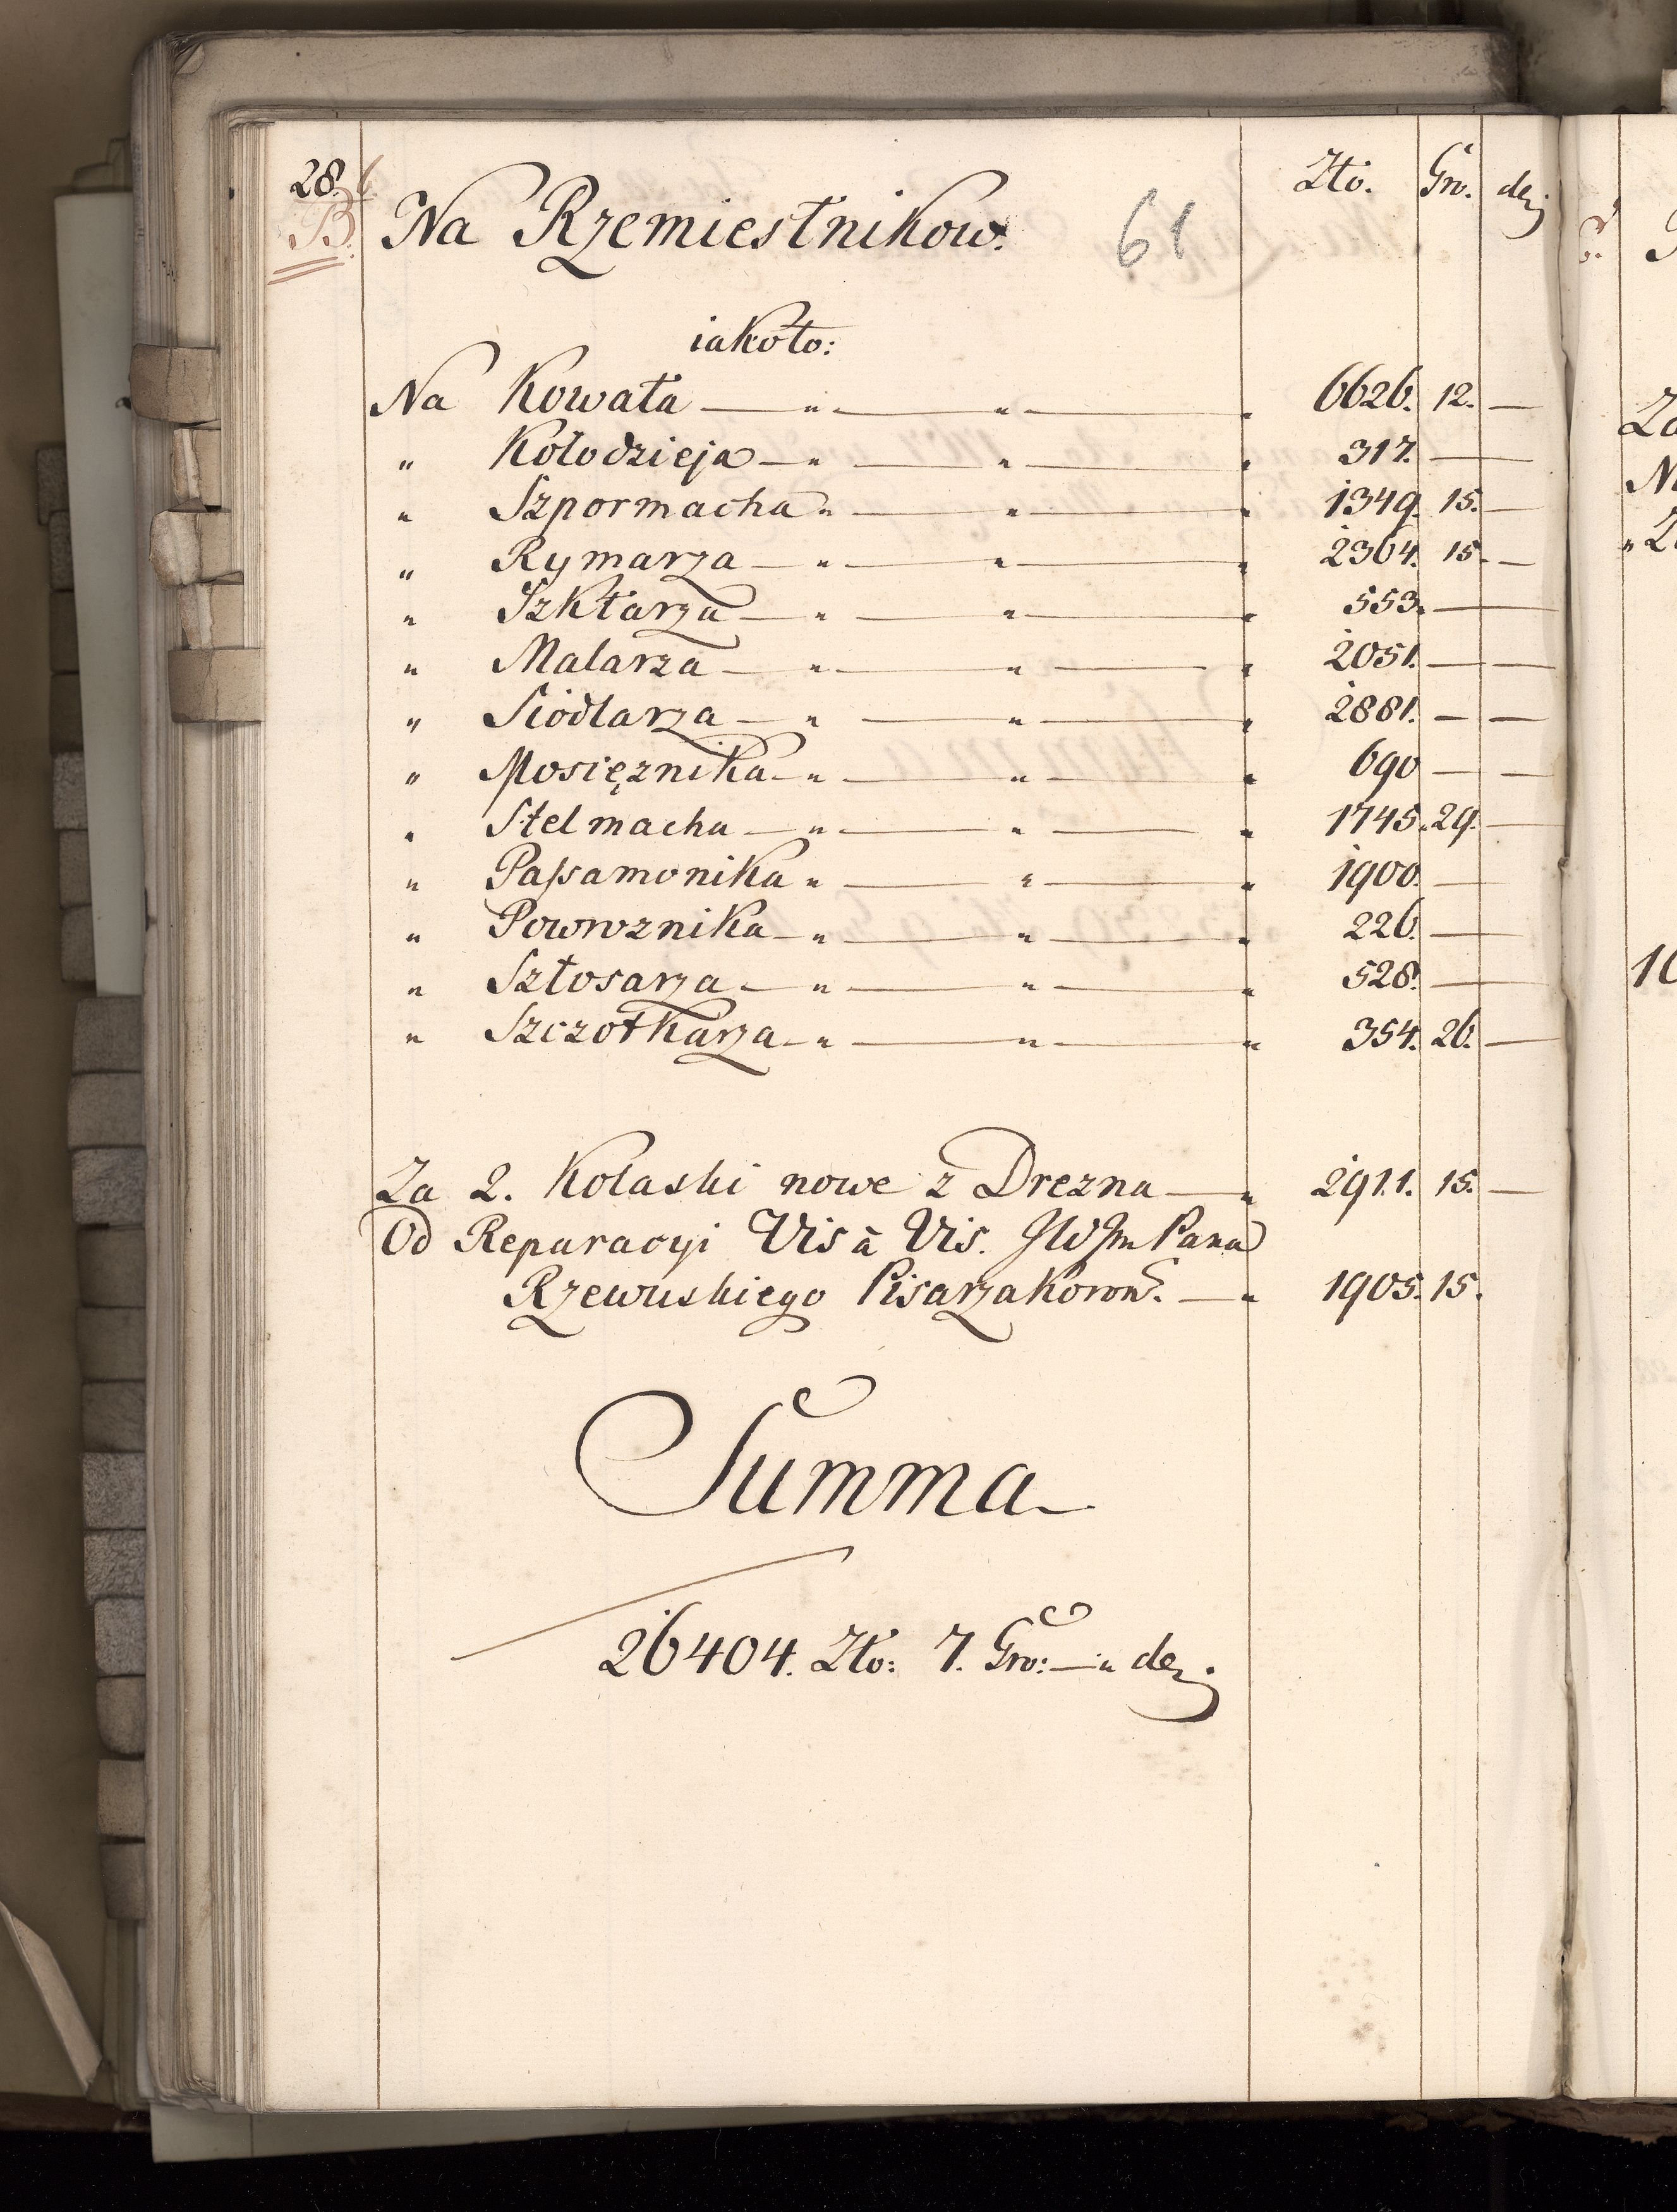 28. Zło. Gro. den:
B. Na Rzemiestnikow. 61
iakoto:
Na Kowala — „ — „ — „ 6626. 12. —
„ Kołodzieja — „ — „ — „ 317. —
„ Szpormacha „ — „ — „ 1349. 15. —
„ Rymarza — „ — „ — „ 2364. 15. —
„ Szklarza — „ — „ — „ 553. —
„ Malarza — „ — „ — „ 2051. — —
„ Siodlarza — „ — „ — „ 2881. — —
„ Mosiężnika — „ — „ — „ 690 — —
„ Stelmacha — „ — „ — „ 1745. 29. —
„ Passamonika „ — „ — „ 1900. —
„ Powroznika — „ — „ — „ 226. —
„ Szlosarza — „ — „ — „ 528. —
„ Szczotkarza — „ — „ — „ 354. 26. —
Za 2. Kolaski nowe z Drezna — „ 2911. 15. —
Od Reparacyi Vis à Vis. JWJm Pana
Rzewuskiego Pisarza Koron. — „ 1905. 15.
Summa
26404. Zło: 7. Gro: — „ den: